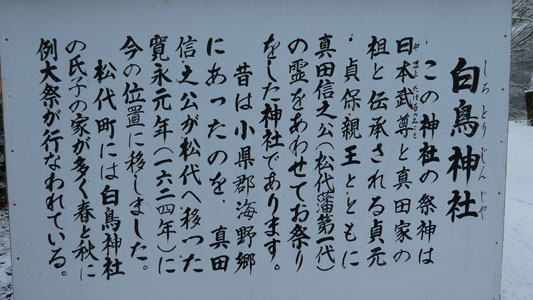 白鳥神社
しろとりじんじゃ
この神社の祭神は
日本武尊と真田家の
やまとたけるのみこと
祖と伝承される貞元
・貞保親王とともに
真田信之公(松代藩第一代)
の霊をあわせてお祭り
をした神社であります。
昔は小県郡海野郷
にあったのを、真田
信之公が松代へ移った
寛永元年(一六二四年)に
今の位置に移しました。
松代町には白鳥神社
の氏子の家が多く春と秋に
例大祭が行なわれている。